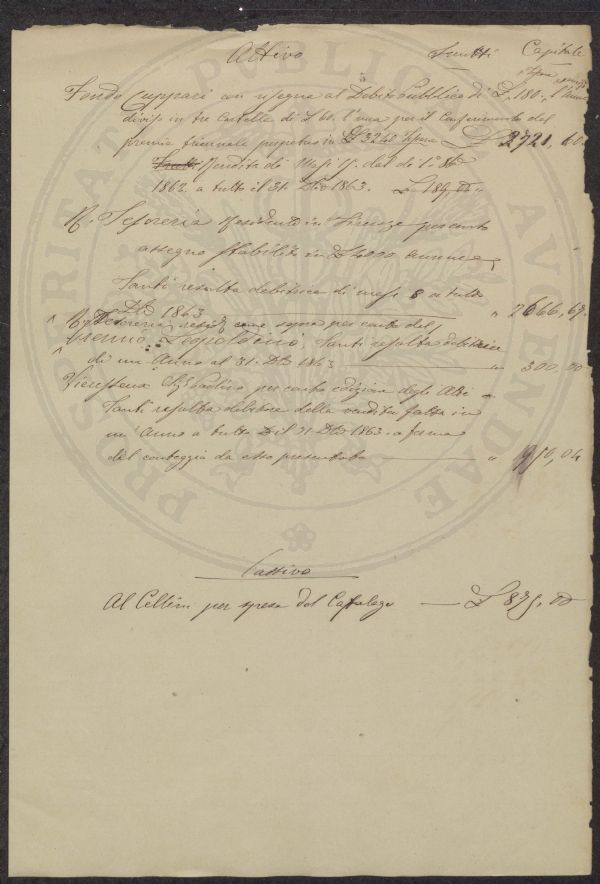 Attivo Frutti Capitale
Fondo Cuppari con rifegno al Debito Pubblico di £ 180., l'Anno
diviso in tre Cartelle di £ 60. l'una per il Conferimento del
premio triennale perpetuo in £ 3240 £ 2721, 60.
Rendita di Mesi 15. dal dì 1° 8bre
1862. a tutto il 31. Dbre 1863. £ 189, 00 "
R. Tesoreria Residente in Firenze per conto
assegno stabilito in £ 4000 annue,
Santi resulta debitrice di mesi 8 a tutto
Dbre 1863 " 2666, 67.
R. Tesoreria resid. come sopra per conto del
Premio Leopoldino, Santi resulta debitrice
di un Anno al 31. Dbre 1863 " 300, 00
Vieusseux per conto edizione degli Atti
Santi resulta debitore della vendita fatta in
un' Anno a tutto Dì 31 Dbre 1863. a forma
del conteggio da esso presentato " 1950, 04
Passivo
Al Cellini per spesa del Catalogo £ 875, 00
PROSPERITAS PUBLICO AUGENDAE